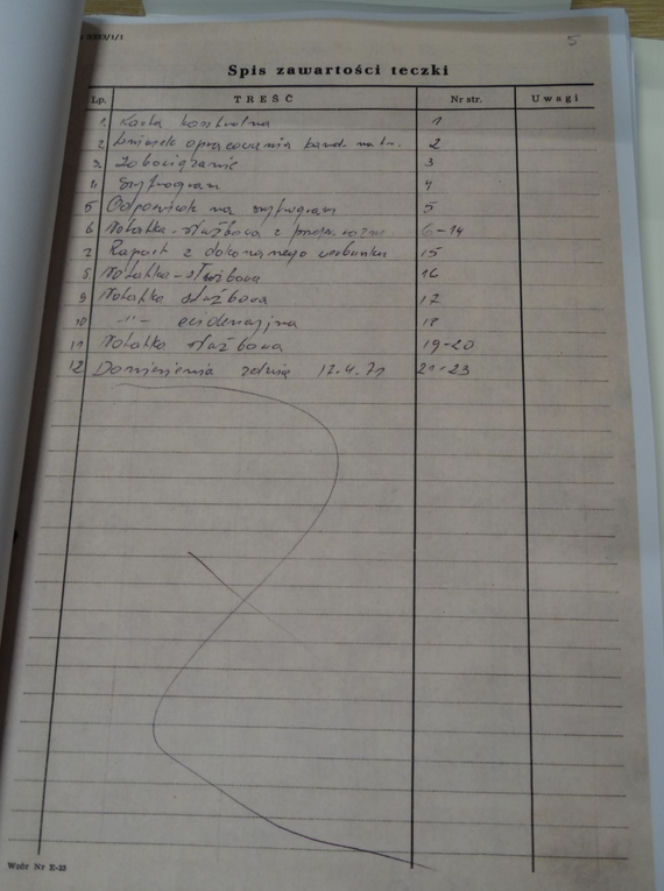 5
Spis zawartości teczki
Lp. TREŚĆ Nr str. Uwagi
1. Karta kontrolna 1
2 Wniosek opracowania kand. na t.w. 2
3. Zobowiązanie 3
4. Szyfrogram 4
5 Odpowiedź na szyfrogram 5
6 Notatka - służbowa z 6-14
7 Raport z dokonanego werbunku 15
8 Notatka - służbowa 16
9 Notatka służbowa 17
10 -"- ewidencyjna 18
11 Notatka służbowa 19-20
12 Doniesienia z dnia 12.4.71 21-23
Wzór Nr E-25